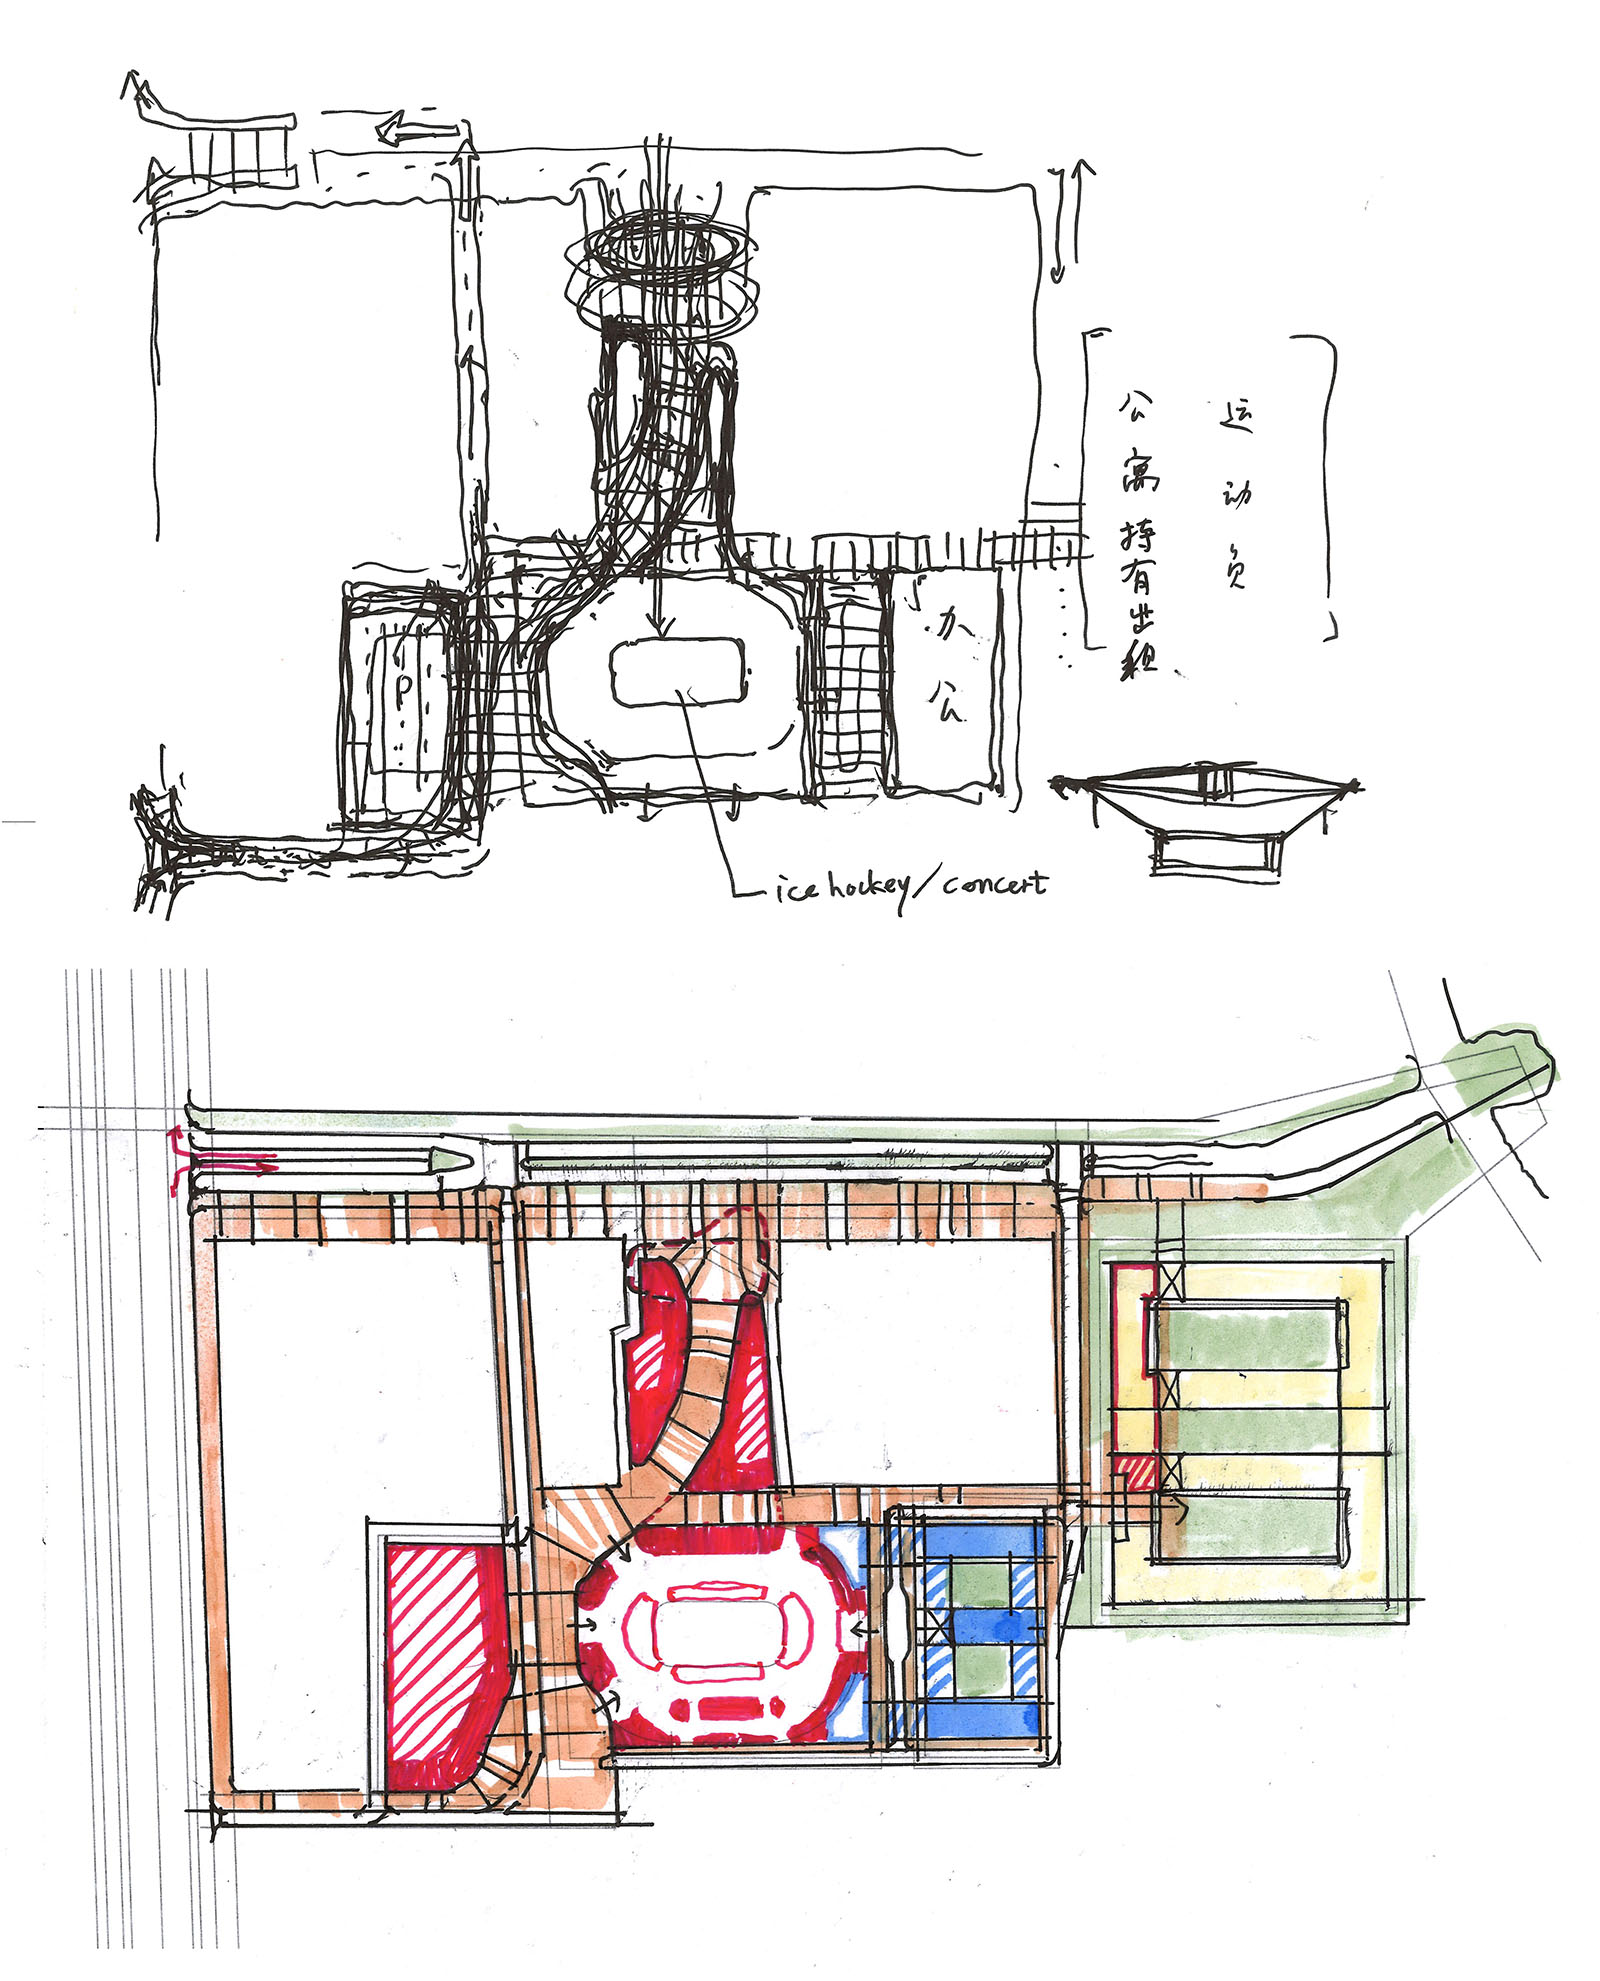 运动员
公寓持有出租
P
办公
ice hockey/concert